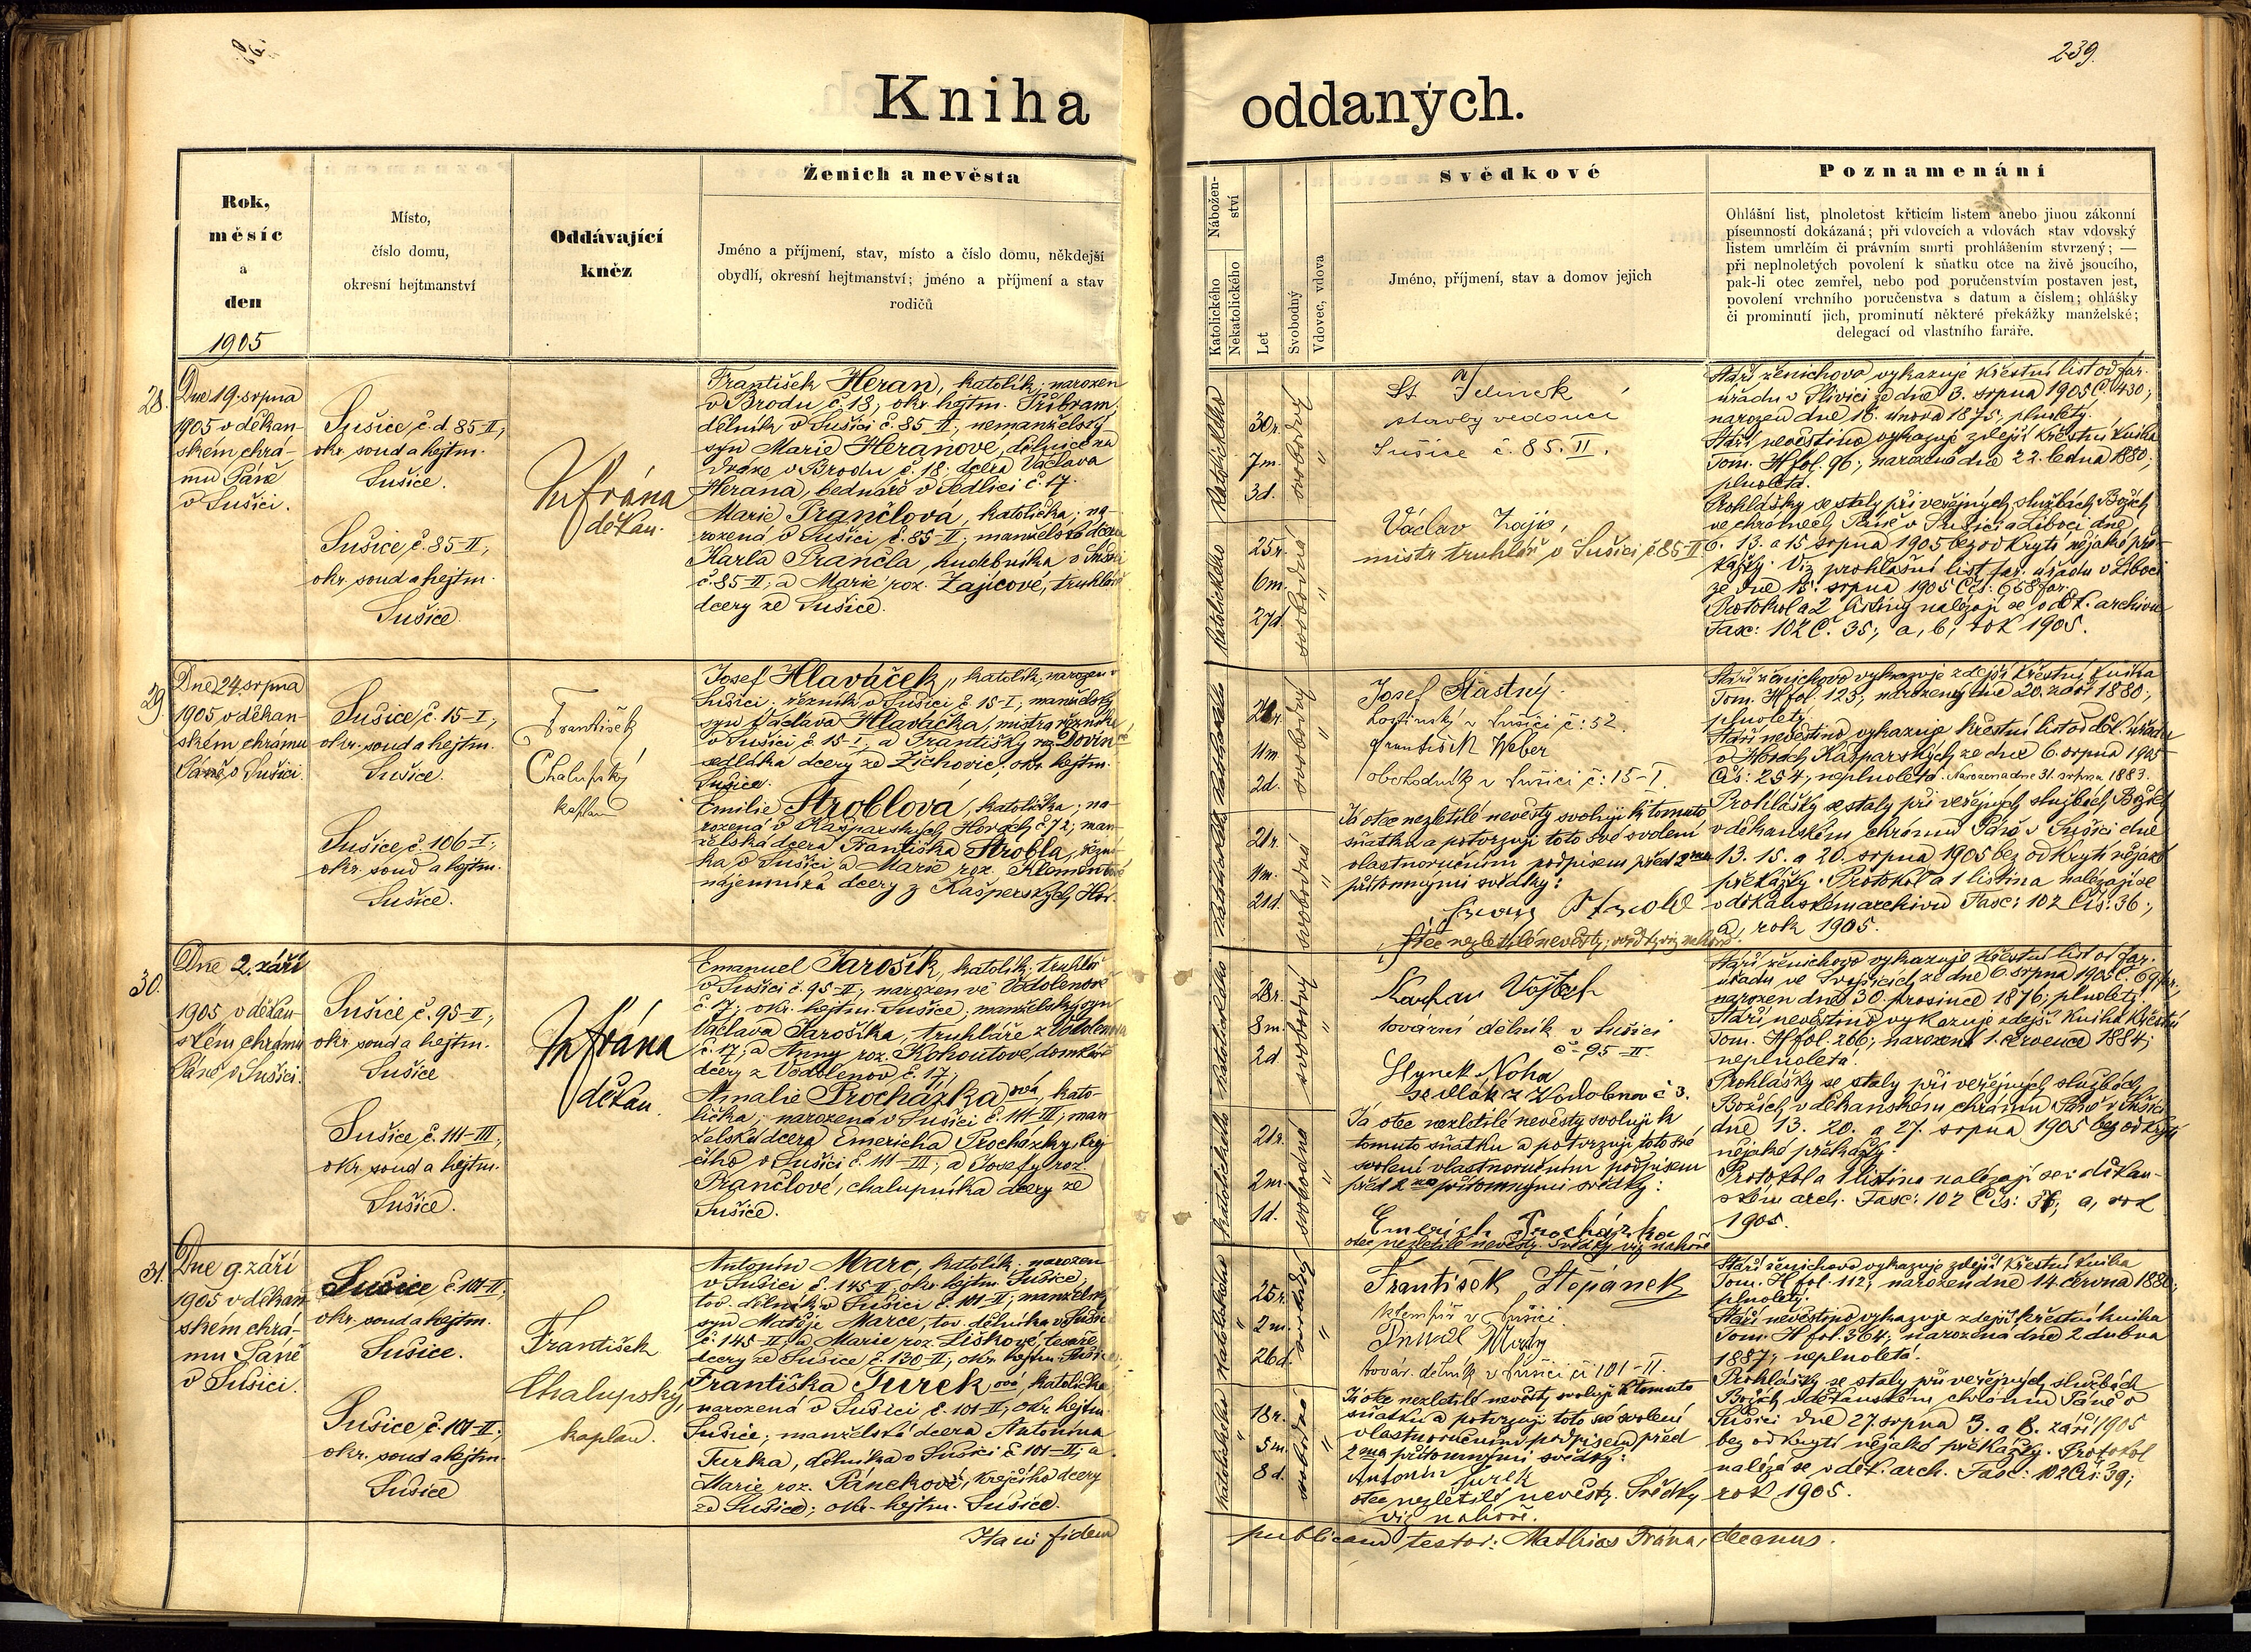 239.
Kniha oddaných.
Rok,
měsíc
a
den
1905
Místo,
číslo domu,
okresní hejtmanství
Oddávající
kněz
Ženich a nevěsta
Jméno a příjmení, stav, místo a číslo domu, někdejší
obydlí, okresní hejtmanství; jméno a příjmení a stav
rodičů
Nábožen-
ství
Katolického
Nekatolického
Let
Svobodný
Vdovec, vdova
Svědkové
Jméno, příjmení, stav a domov jejich
Poznamenání
Ohlášní list, plnoletost křticím listem anebo jinou zákonní
písemností dokázaná; při vdovcích a vdovách stav vdovský
listem umrlčím či právním smrti prohlášením stvrzený; —
při neplnoletých povolení k sňatku otce na živě jsoucího,
pak-li otec zemřel, nebo pod poručenstvím postaven jest,
povolení vrchního poručenstva s datum a číslem; ohlášky
či prominutí jich, prominutí některé překážky manželské;
delegací od vlastního faráře.
28.
Dne 19. srpna
1905 v děkan-
ském chrá-
mu Páně
v Sušici.
Sušice, č. d. 85-II;
okr. soud a hejtm.
Sušice.
Sušice, č. 85-II;
okr. soud a hejtm.
Sušice.
Frána
děkan.
František Heran, katolík; narozen
v Brodu č. 18; okr. hejtm. Příbram,
dělník v Sušici č. 85-II; nemanželský
syn Marie Heranové, dělnice na
dráze v Brodu č. 18. dcera Václava
Herana, bednáře v Sedlici č. 17.
Marie Prančlová, katolička; na-
rozená v Sušici č. 85-II; manželská dcera
Karla Prančla, hudebníka v Sušici
č. 85-II; a Marie roz. Zajícové, truhláře
dcery ze Sušice.
Katolického
30r.
7m.
3d.
svobodný
Katolického
25r.
6m.
27d
svobodná
Jelinek
stavby vedoucí
Sušice č. 85. II.
Václav Zajíc,
mistr truhlář v Sušici č. 85-II
Stáří ženichovo vykazuje křestní list od far.
úřadu v Slivici ze dne 3. srpna 1905 č. 430;
narozen dne 16. února 1875; plnoletý.
Stáří nevěstino vykazuje zdejší křestní kniha
Tom. H fol. 96; narozená dne 22. ledna 1880;
plnoletá.
Prohlášky se staly při veřejných službách Božích
ve chrámech Páně v Sušici a Liboci dne
6. 13. a 15 srpna 1905 bez odkrytí nějaké pře-
kážky. Viz prohlášní list far. úřadu v Liboci
ze dne 15. srpna 1905 Čís: 658 far.
Protokol a 2 listiny nalézají se v děk. archivu
Fasc: 102 Č. 35; a, b, rok 1905.
29.
Dne 24. srpna
1905 v děkan-
ském chrámu
Páně v Sušici.
Sušice, č. 15-I;
okr. soud a hejtm.
Sušice.
Sušice, č. 106-I;
okr. soud a hejtm.
Sušice.
František
Chalupský
kaplan
Josef Hlaváček, katolík, narozen v
Sušici; řezník v Sušici č. 15-I; manželský
syn Václava Hlaváčka, mistra řeznického
v Sušici č. 15-I, a Františky roz.
sedláka dcery ze Žichovic; okr. hejtm.
Sušice.
Emilie Stroblová, katolička; na-
rozená v Kašparských Horách č. 72; man-
želská dcera Františka Strobla, řezní-
ka v Sušici a Marie roz. Klementové
nájemníka dcery z Kašperských Hor.
Katolického
11m
2d.
svobodný
Katolického
21r.
11m.
21d.
svobodná
Josef Šťastný
v Sušici č: 52.
František Weber
obchodník v Sušici č: 15-I.
Já otec nezletilé nevěsty svoluji k tomuto
sňatku a potvrzuji toto své svolení
vlastnoručním podpisem před 2ma
přítomnými svědky:
Otec nezletilé nevěsty; svědky viz nahoře.
Stáří ženichovo vykazuje zdejší křestní kniha
Tom. H fol. 125; narozený dne 20. září 1880;
plnoletý.
Stáří nevěstino vykazuje křestní list od děk. úřadu
v Horách Kašparských ze dne 6. srpna 1905
Čís: 254; neplnoletá. Narozena dne 31. srpna 1883.
Prohlášky se staly při veřejných službách Božích
v děkanském chrámu Páně v Sušici dne
13. 15. a 20. srpna 1905 bez odkrytí nějaké
překážky. Protokol a 1 listina nalézají se
v děkanském archivu Fasc: 102 Čís: 36;
a, rok 1905.
30.
Dne 2. září
1905 v děkan-
ském chrámu
Páně v Sušici.
Sušice č. 95-II;
okr. soud a hejtm.
Sušice
Sušice, č. 111-III;
okr. soud a hejtm.
Sušice.
Frána
děkan.
Emanuel Jarošík, katolík; truhlář
v Sušici č. 95-II; narozen ve Vodolenově
č. 17; okr. hejtm. Sušice, manželský syn
Václava Jarošíka, truhláře z Vodolenova
č. 17; a Anny roz. Kohoutové, domkáře
dcery z Vodolenov č. 17;
Amalie Procházková, kato-
lička; narozená v Sušici č. 111-III; man
želská dcera Emericha Procházky, krej-
čího v Sušici č. 111-III; a Josefy roz.
Prančlové, chalupníka dcery ze
Sušice.
Katolického
28r.
8m.
2d
svobodný
Katolického
21r.
2m.
1d.
svobodná
Vojtěch
tovární dělník v Sušici
č-95-II.
Hynek Noha
sedlák z Vodolenov č 3.
Já otec nezletilé nevěsty svoluji k
tomuto sňatku a potvrzuji toto své
svolení vlastnoručním podpisem
před 2ma přítomnými svědky:
Emerich Procházka
otec nezletilé nevěsty. Svědky viz nahoře
Stáří ženichovo vykazuje křestní list od far.
úřadu ve Svojšicích ze dne 6. srpna 1905 č. 69 far.;
narozen dne 30. prosince 1876; plnoletý.
Stáří nevěstino vykazuje zdejší kniha křestní
Tom. H fol. 266; narozena 1. července 1884;
neplnoletá.
Prohlášky se staly při veřejných službách
Božích v děkanském chrámu Páně v Sušici
dne 13. 20. a 27. srpna 1905 bez odkrytí
nějaké překážky.
Protokol a 1 listina nalézají se v děkan-
ském arch. Fasc: 102 Čís: a, rok
1905.
31.
Dne 9. září
1905 v děkan
ském chrá-
mu Páně
v Sušici.
Sušice č. 101-II;
okr. soud a hejtm.
Sušice.
Sušice č. 101-II;
okr. soud a hejtm.
Sušice
František
Chalupský,
kaplan.
Antonín Marc, katolík, narozen
v Sušici č. 145-II, okr. hejtm. Sušice;
tov. dělník v Sušici č. 101-II; manželský
syn Matěje Marce, tov. dělníka v Sušici
č. 145-II; a Marie roz. Liškové, tesaře
dcery ze Sušice č. 130-II; okr. hejtm. Sušice.
Františka Tureková, katolička
narozená v Sušici č. 101-II; okr. hejtm.
Sušice; manželská dcera Antonína
Turka, dělníka v Sušici č. 101-II; a
Marie roz. Pánekové, krejčího dcery
ze Sušice; okr. hejtm. Sušice.
Katolického
25r.
2m.
26d.
svobodný
Katolického
18r.
5m.
8d.
svobodná
František Štěpánek
klempíř v Sušici.
továr. dělník v Sušici či 101-II.
Já otec nezletilé nevěsty svoluji k tomuto
sňatku a potvrzuji toto své svolení
vlastnoručním podpisem před
2ma přítomnými svědky:
Antonín Turek
otec nezletilé nevěsty. Svědky
viz nahoře.
Stáří ženichovo vykazuje zdejší křestní kniha
Tom. H fol. 112; narozen dne 14. června 1880;
plnoletý.
Stáří nevěstino vykazuje zdejší křestní kniha
Tom. H fol. 364; narozená dne 2 dubna
1887; neplnoletá.
Prohlášky se staly při veřejných službách
Božích v děkanském chrámu Páně v
Sušici dne 27. srpna 3. a 8. září 1905
bez odkrytí nějaké překážky. Protokol
nalézá se v děk. arch. Fasc: 102 Čís: 39;
rok 1905.
Ita in fidem publicam testor: Mathias Frána, decanus.